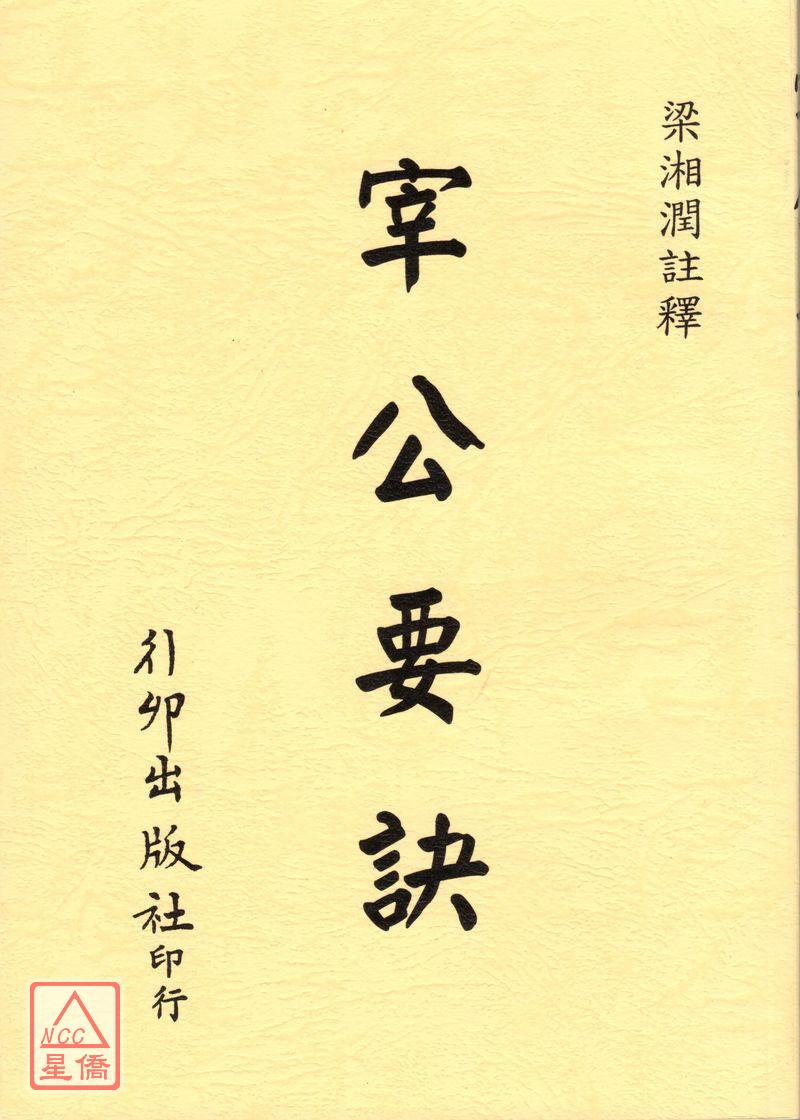 梁湘潤註釋
宰公要訣
行卯出版社印行
NCC
星僑